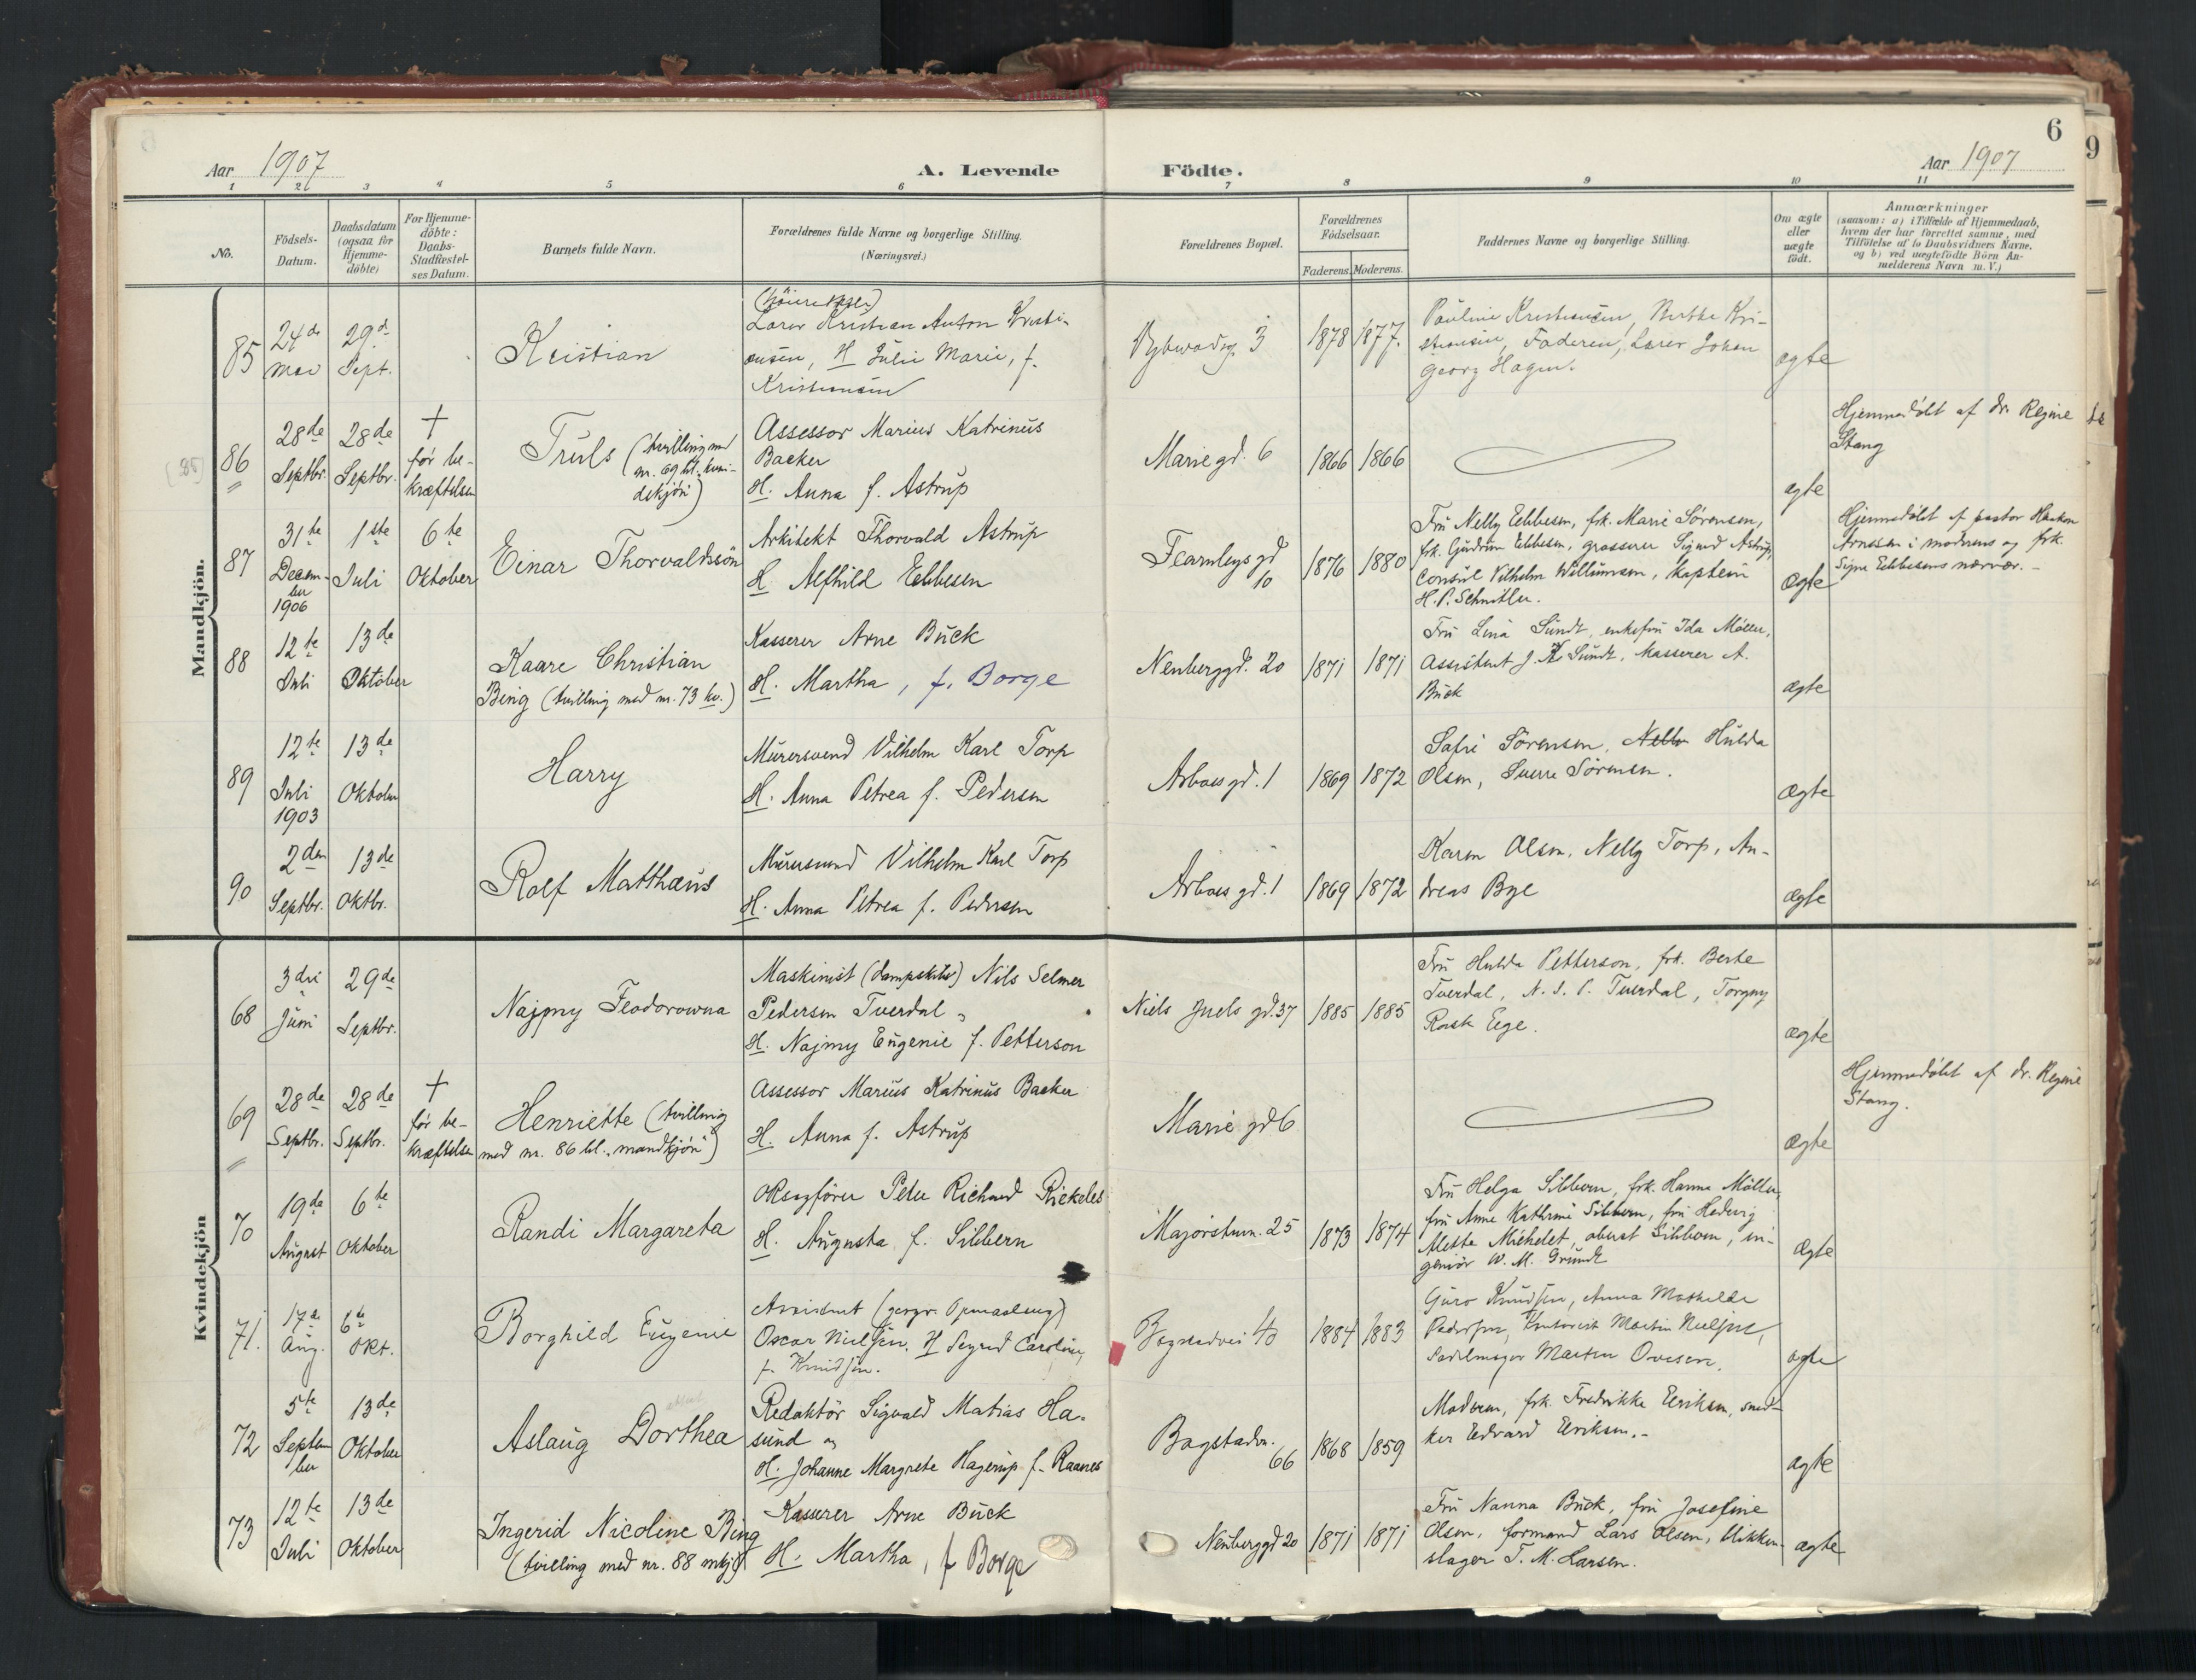 6
Aar 1907
A. Levende Födte.
Aar 1907
1 2 3 4 5 6 7 8 9 10 11
No.
Födsels-
Datum.
Daabsdatum
(ogsaa for
Hjemme-
döbte)
For Hjemme-
döbte:
Daabs-
Stadfæstel-
ses Datum.
Barnets fulde Navn.
Forældrenes fulde Navne og borgerlige Stilling.
(Næringsvei.)
Forældrenes Bopæl.
Forældrenes
Födselsaar.
Faderens. Moderens.
Faddernes Navne og borgerlige Stilling.
Om ægte
eller
uægte
födt.
Anmærkninger
(saasom: a) i Tilfælde af Hjemmedaab,
hvem der har forrettet samme, med
Tilföielse af to Daabsvidners Navne,
og b) ved uægtefödte Börn An-
melderens Navn m. V.)
Mandkjön.
85
24de
Mai
29de
Sept.
Kristian
Lærer Kristian Anton Kristi-
ansen, H. Julie Marie, f.
Kristiansen
3
1878
1877.
Pauline Kristiansen, Berthe Kri-
stiansen, Faderen, Lærer Johan
Georg Hagen.
ægte
86
28de
Septbr.
28de
Septbr.
†
før be-
kræftelsen
Truls (tvilling med
nr. 69 bl. kvin-
dekjön)
Assessor Marius Katrinus
Backer
H. Anna f. Astrup
Mariegd. 6
1866
1866
ægte
Hjemmedöbt af dr. Regine
Stang
87
31te
Decem-
ber
1906
1ste
Juli
6te
Oktober
Einar Thorvaldssön
Arkitekt Thorvald Astrup
H. Alfhild Ebbesen
Fearnleys gd
10
1876
1880
Fru Nelly Ebbesen, frk. Marie Sørensen,
frk. Gudrun Ebbesen, grosserer Sigurd Astrup,
Consul Vilhelm Willumsen, Kaptein
H. P. Schnitler.
ægte
Hjemmedöbt af pastor Haakon
Arnesen i moderens og frk.
Signe Ebbesens nærvær.-
88
12te
Juli
13de
Oktober
Kaare Christian
Bing (tvilling med nr. 73 kv.)
Kasserer Arne Buck
H. Martha, f. Borge
Neuberggd. 20
1871
1871
Fru Lina Sundt, enkefru Ida Møller,
Assistent J. K. Sundt, Kasserer A.
Buck
ægte
89
12te
Juli
1903
13de
Oktober
Harry
Murersvend Vilhelm Karl Torp
H. Anna Petrea f. Pedersen
Arboes gd. 1
1869
1872
Sofie Sörensen, Nelly Hulda
Olsen, Sverre Sörensen.
ægte
90
2den
Septbr.
13de
Oktbr.
Rolf Matthæus
Murersvend Vilhelm Karl Torp
H. Anna Petrea f. Pedersen
Arboes gd. 1
1869
1872
Karen Olsen, Nelly Torp, An-
dreas Bye
ægte
Kvindekjön
68
3die
Juni
29de
Septbr.
Najmy Feodorowna
Maskinist (dampskibs) Nils Selmer
Pedersen Tverdal,
H. Najmy Eugenie f. Petterson
Niels Juels gd. 37
1885
1885
Fru Hulda Petterson, frk. Berte
Tverdal, N. S. P. Tverdal, Torgny
Rask Eege.
ægte
69
28de
Septbr.
28de
Septbr.
†
før be-
kræftelsen
Henriette (tvilling
med nr. 86 bl. mandkjön)
Assessor Marius Katrinus Backer
H. Anna f. Astrup
Marie gd 6
ægte
Hjemmedöbt af dr. Regine
Stang.
70
19de
August
6te
Oktober
Randi Margareta
ORsagförer Peter Richard Rickeles
H. Augusta f. Sibbern
Majorstuv. 25
1873
1874
Fru Helga Sibbern, frk. Hanna Möller,
fru Anne Kathrine Sibbern, fru Hedevig
Alette Michelet, oberst Sibbern, in-
geniör W. M. Grundt
ægte
71.
17de
Aug.
6te
Okt.
Borghild Eugenie
Assistent (geogr. Opmaaling)
Oscar Nielsen, H. Sigrid Caroline,
f. Knudsen.
Bogstadvei 40
1884
1883
Guro Knudsen, Anna Mathilde
Pedersen, Kontorist Martin Nielsen,
Sadelmager Martin Ovesen.
ægte
72
5te
Septem-
ber
13de
Oktober
Aslaug Dorthea
Redaktör Sigvald Matias Ha-
sund og
H. Johanne Margrete Hagerup f. Raanes
Bogstadv.
66
1868
1859
Moderen, frk. Fredrikke Eriksen, sned-
ker Edvard Eriksen.-
ægte
73
12te
Juli
13de
Oktober
Ingerid Nicoline Bing
(tvilling med nr. 88 mkj)
Kasserer Arne Buck
H. Martha, f Borge
Neuberggd 20
1871
1871
Fru Nanna Buck, fru Josefine
Olsen, formand Lars Olsen, blikken-
slager T. M. Larsen.
ægte
9